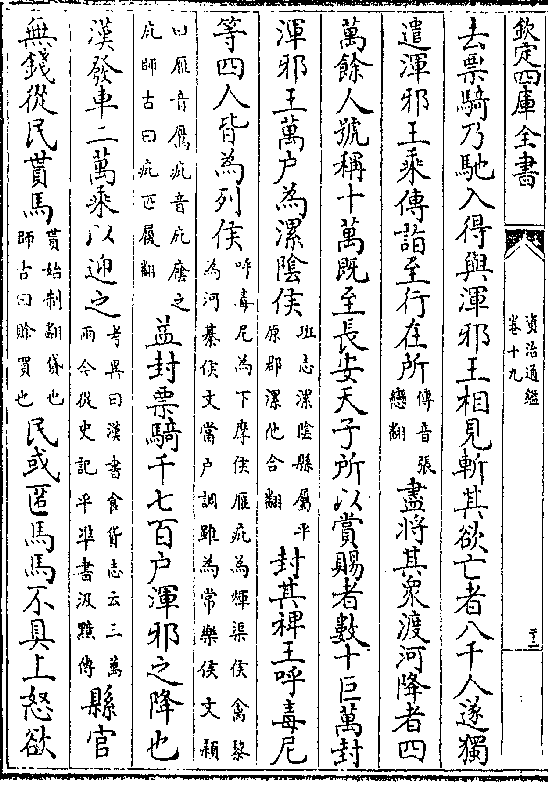 欽定四庫全書
資治通鑑
卷十九
去票騎乃馳入得與渾邪王相見斬其欲亡者八千人遂獨
遣渾邪王乘傳詣至行在所傳音張戀翻盡將其衆渡河降者四
萬餘人號稱十萬既至長安天子所以賞賜者數十巨萬封
渾邪王萬户為漯陰侯班志漯陰縣屬平原郡漯他合翻封其裨王呼毒尼
等四人皆為列侯呼毒尼為下摩侯雁疪為煇渠侯禽黎為河綦侯文當户調雖為常樂侯文穎
曰雁音鷹疪音庇廕之庇師古曰疪匹履翻益封票騎千七百户渾邪之降也
漢發車二萬乘以迎之考異曰漢書食貨志云三萬兩今從史記平準書汲黯傳縣官
無錢從民貰馬貰始制翻貸也師古曰賒買也民或匿馬馬不具上怒欲